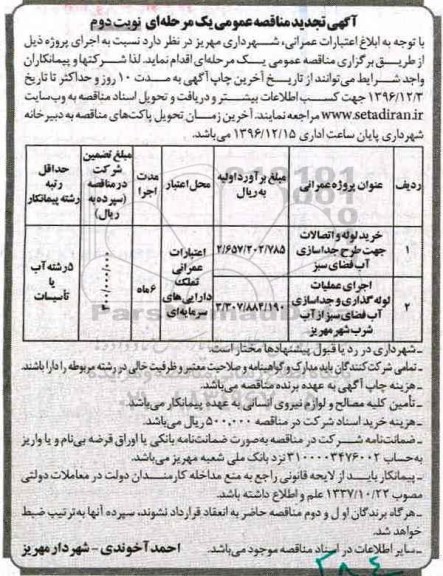 آگهی تجدید مناقصه عمومی یک مرحله‌ای نوبت دوم
با توجه به ابلاغ اعتبارات عمرانی، شهرداری مهریز در نظر دارد نسبت به اجرای پروژه ذیل
از طریق برگزاری مناقصه عمومی یک مرحله‌ای اقدام نماید. لذا شرکتها و پیمانکاران
واجد شرایط می‌توانند از تاریخ آخرین چاپ آگهی به مدت ۱۰ روز و حداکثر تا تاریخ
۱۳۹۶/۱۲/۳ جهت کسب اطلاعات بیشتر و دریافت و تحویل اسناد مناقصه به وب‌سایت
www.setadiran.ir مراجعه نمایند. آخرین زمان تحویل پاکت‌های مناقصه به دبیرخانه
شهرداری پایان ساعت اداری ۱۳۹۶/۱۲/۱۵ می‌باشد.
ردیف عنوان پروژه عمرانی مبلغ برآورد اولیه به ریال محل اعتبار مدت اجرا مبلغ تضمین شرکت در مناقصه (سپرده به ریال) حداقل رتبه رشته پیمانکار
۱ خرید لوله و اتصالات جهت طرح جداسازی آب فضای سبز ۲/۶۵۷/۲۰۲/۷۸۵
۲ اجرای عملیات لوله گذاری و جداسازی آب فضای سبز از آب شرب شهر مهریز ۳/۳۰۷/۸۸۴/۱۹۰
اعتبارات عمرانی تملک دارایی‌های سرمایه‌ای ۶ماه ۳۰۰/۰۰۰/۰۰۰ ۵ رشته آب یا تأسیسات
ـ شهرداری در رد یا قبول پیشنهادها مختار است.
ـ تمامی شرکت کنندگان باید مدارک و گواهینامه و صلاحیت معتبر و ظرفیت خالی در رشته مربوطه را دارا باشند.
ـ هزینه چاپ آگهی به عهده برنده مناقصه می‌باشد.
ـ تأمین کلیه مصالح و لوازم نیروی انسانی به عهده پیمانکار می‌باشد.
ـ هزینه خرید اسناد شرکت در مناقصه ۵۰۰,۰۰۰ ریال می‌باشد.
ـ ضمانت‌نامه شرکت در مناقصه به‌صورت ضمانت‌نامه بانکی یا اوراق قرضه بی‌نام و یا واریز
به حساب ۳۱۰۰۰۰۳۴۷۶۰۰۲ نزد بانک ملی شعبه مهریز می‌باشد.
ـ پیمانکار باید از لایحه قانونی راجع به منع مداخله کارمندان دولت در معاملات دولتی
مصوب ۱۳۳۷/۱۰/۲۲ علم و اطلاع داشته باشد.
ـ هرگاه برندگان اول و دوم مناقصه حاضر به انعقاد قرارداد نشوند، سپرده آنها به‌ترتیب ضبط
خواهد شد.
ـ سایر اطلاعات در اسناد مناقصه موجود می‌باشد. احمد آخوندی - شهردار مهریز